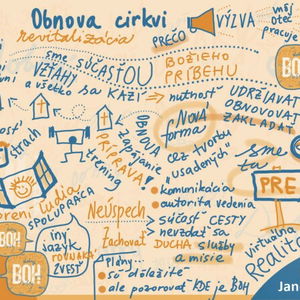 Obnova cirkvi
revitalizácia
PREČO
VÝZVA
môj
otec
pracuje
sme SÚČASŤOU
BOŽIEHO
PRÍBEHU
VZŤAHY
a všetko sa KAZÍ
nutnosť
UDRŽIAVAŤ
OBNOVOVAŤ
ZAKLADAŤ
BOH
Nová
forma
cez tvorbu
"usadených"
OBNOVU
zapájanie
PRÍPRAVA!
tréning
sme
tu
PRE
ľudia
SPOLUPRÁCA
komunikácia
autorita vedenia
súčasť CESTY
nevzdať sa
DUCHA služby
a misie
Neúspech
zachovať
iný
jazyk
ROVNAKÁ
ZVESŤ
BOH
BOH
BOH
plány...
sú dôležité
ale pozorovať KDE je BOH
virtuálna
Realita
Jan